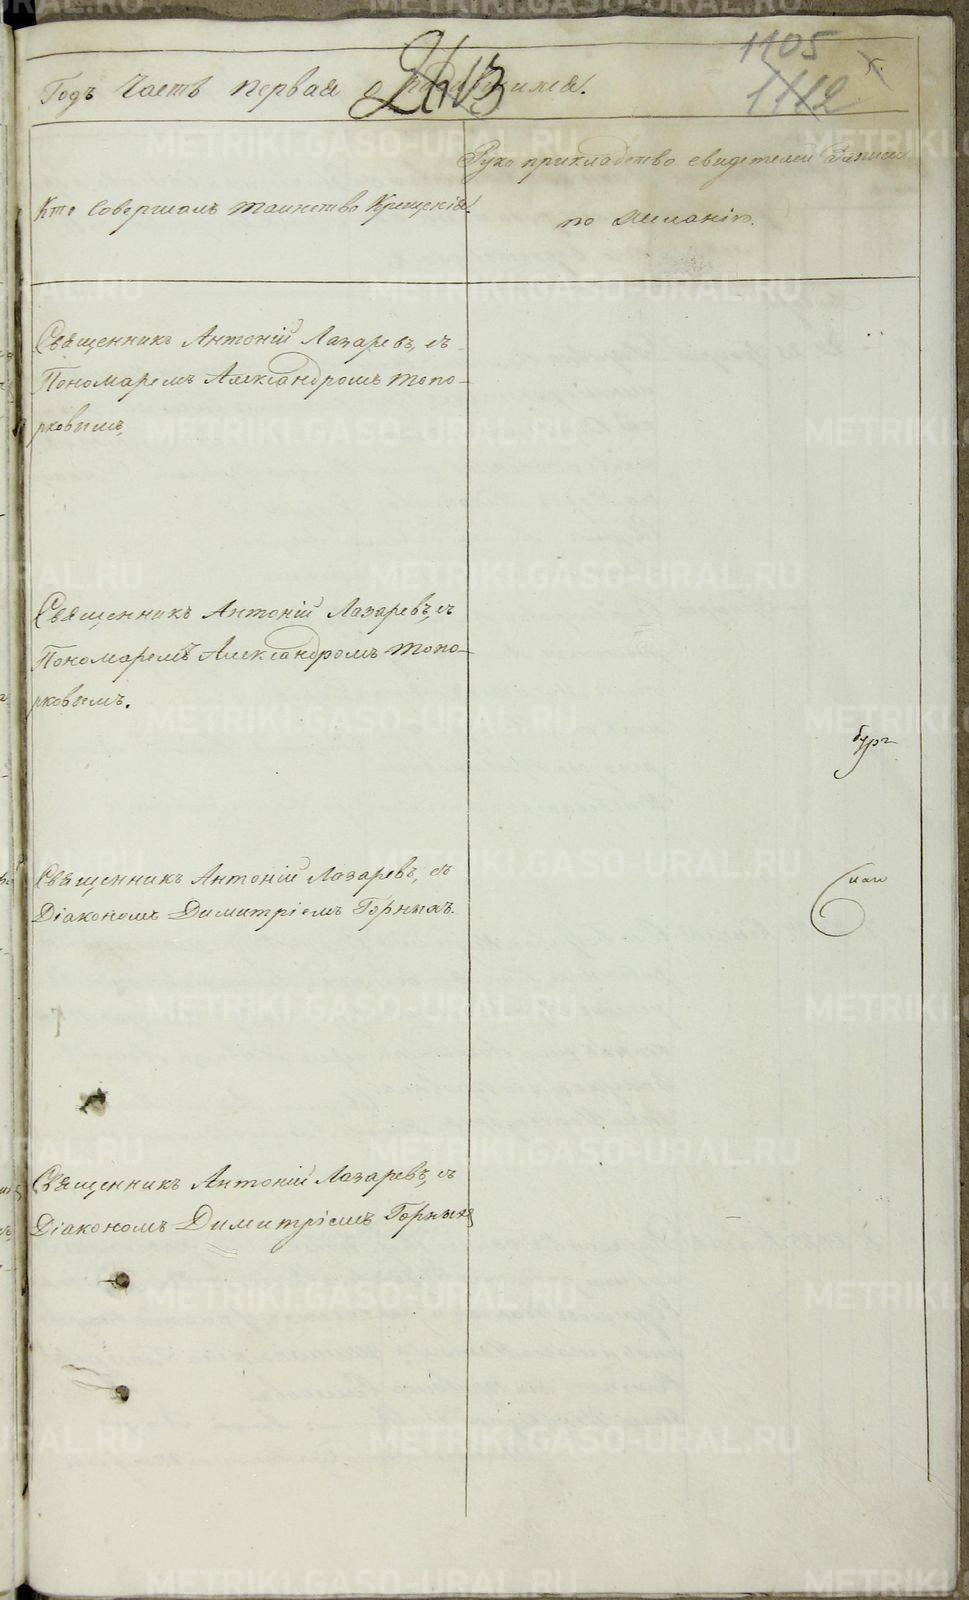 1105
Годъ Часть первая о родившихся.
1112
Рукоприкладство свидетелей записи
по желанію.
Кто совершалъ таинство Крещенія.
Священникъ Антоній Лазаревъ, съ
Пономаремъ Александромъ Топо-
рковымъ,
Священникъ Антоній Лазаревъ, съ
Пономаремъ Александромъ Топо-
рковымъ.
бург
Священникъ Антоній Лазаревъ, съ
Діакономъ Димитріемъ Горныхъ.
Священникъ Антоній Лазаревъ, съ
Діакономъ Димитріемъ Горныхъ
METRIKI.GASO-URAL.RU